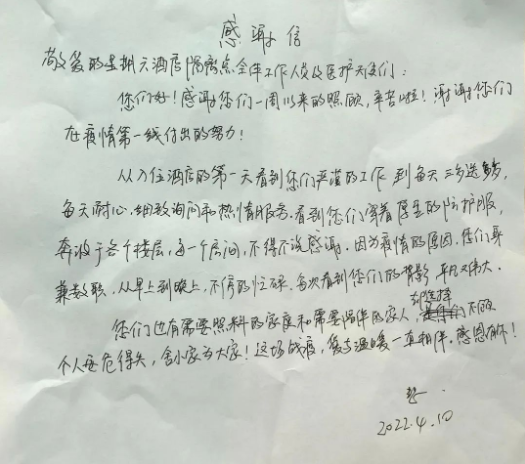 感谢信
敬爱的星期六酒店隔离点全体工作人员及医护天使们：
您们好！感谢您们一周以来的照顾，辛苦啦！谢谢您们
在疫情第一线付出的努力！
从入住酒店的第一天看到您们严谨的工作到每天三步送餐，
每天耐心、细致询问和热情服务。看到您们穿着厚重的防护服，
奔波于各个楼层，每一个房间，不得不说感谢。因为疫情的原因，您们身
兼数职，从早上到晚上，不停的忙碌。每次看到您们的背影平凡又伟大。
您们也有需要照料的家庭和需要陪伴的家人，却选择不顾
个人安危得失，舍小家为大家！这场战疫，爱与温暖一直相伴。感恩有你！
2022.4.10